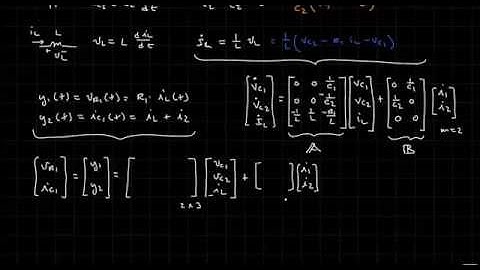 C₂
i_L L v_L = L di_L/dt i̇_L = 1/L v_L = 1/L (v_C2 - R₁ i_L - v_C1)
+ v_L -
y₁(t) = v_R1(t) = R₁ · i_L(t)
y₂(t) = i_C1(t) = i_L + i₂
[v̇_C1; v̇_C2; i̇_L] = [0 0 1/C₁; 0 0 -1/C₂; -1/L 1/L -R₁/L] [v_C1; v_C2; i_L] + [0 1/C₁; 1/C₂ 0; 0 0] [i₁; i₂]
m=2
A B
[v_R1; i_C1] = [y₁; y₂] = [ ] [v_C1; v_C2; i_L] + [ ] [i₁; i₂]
2x3